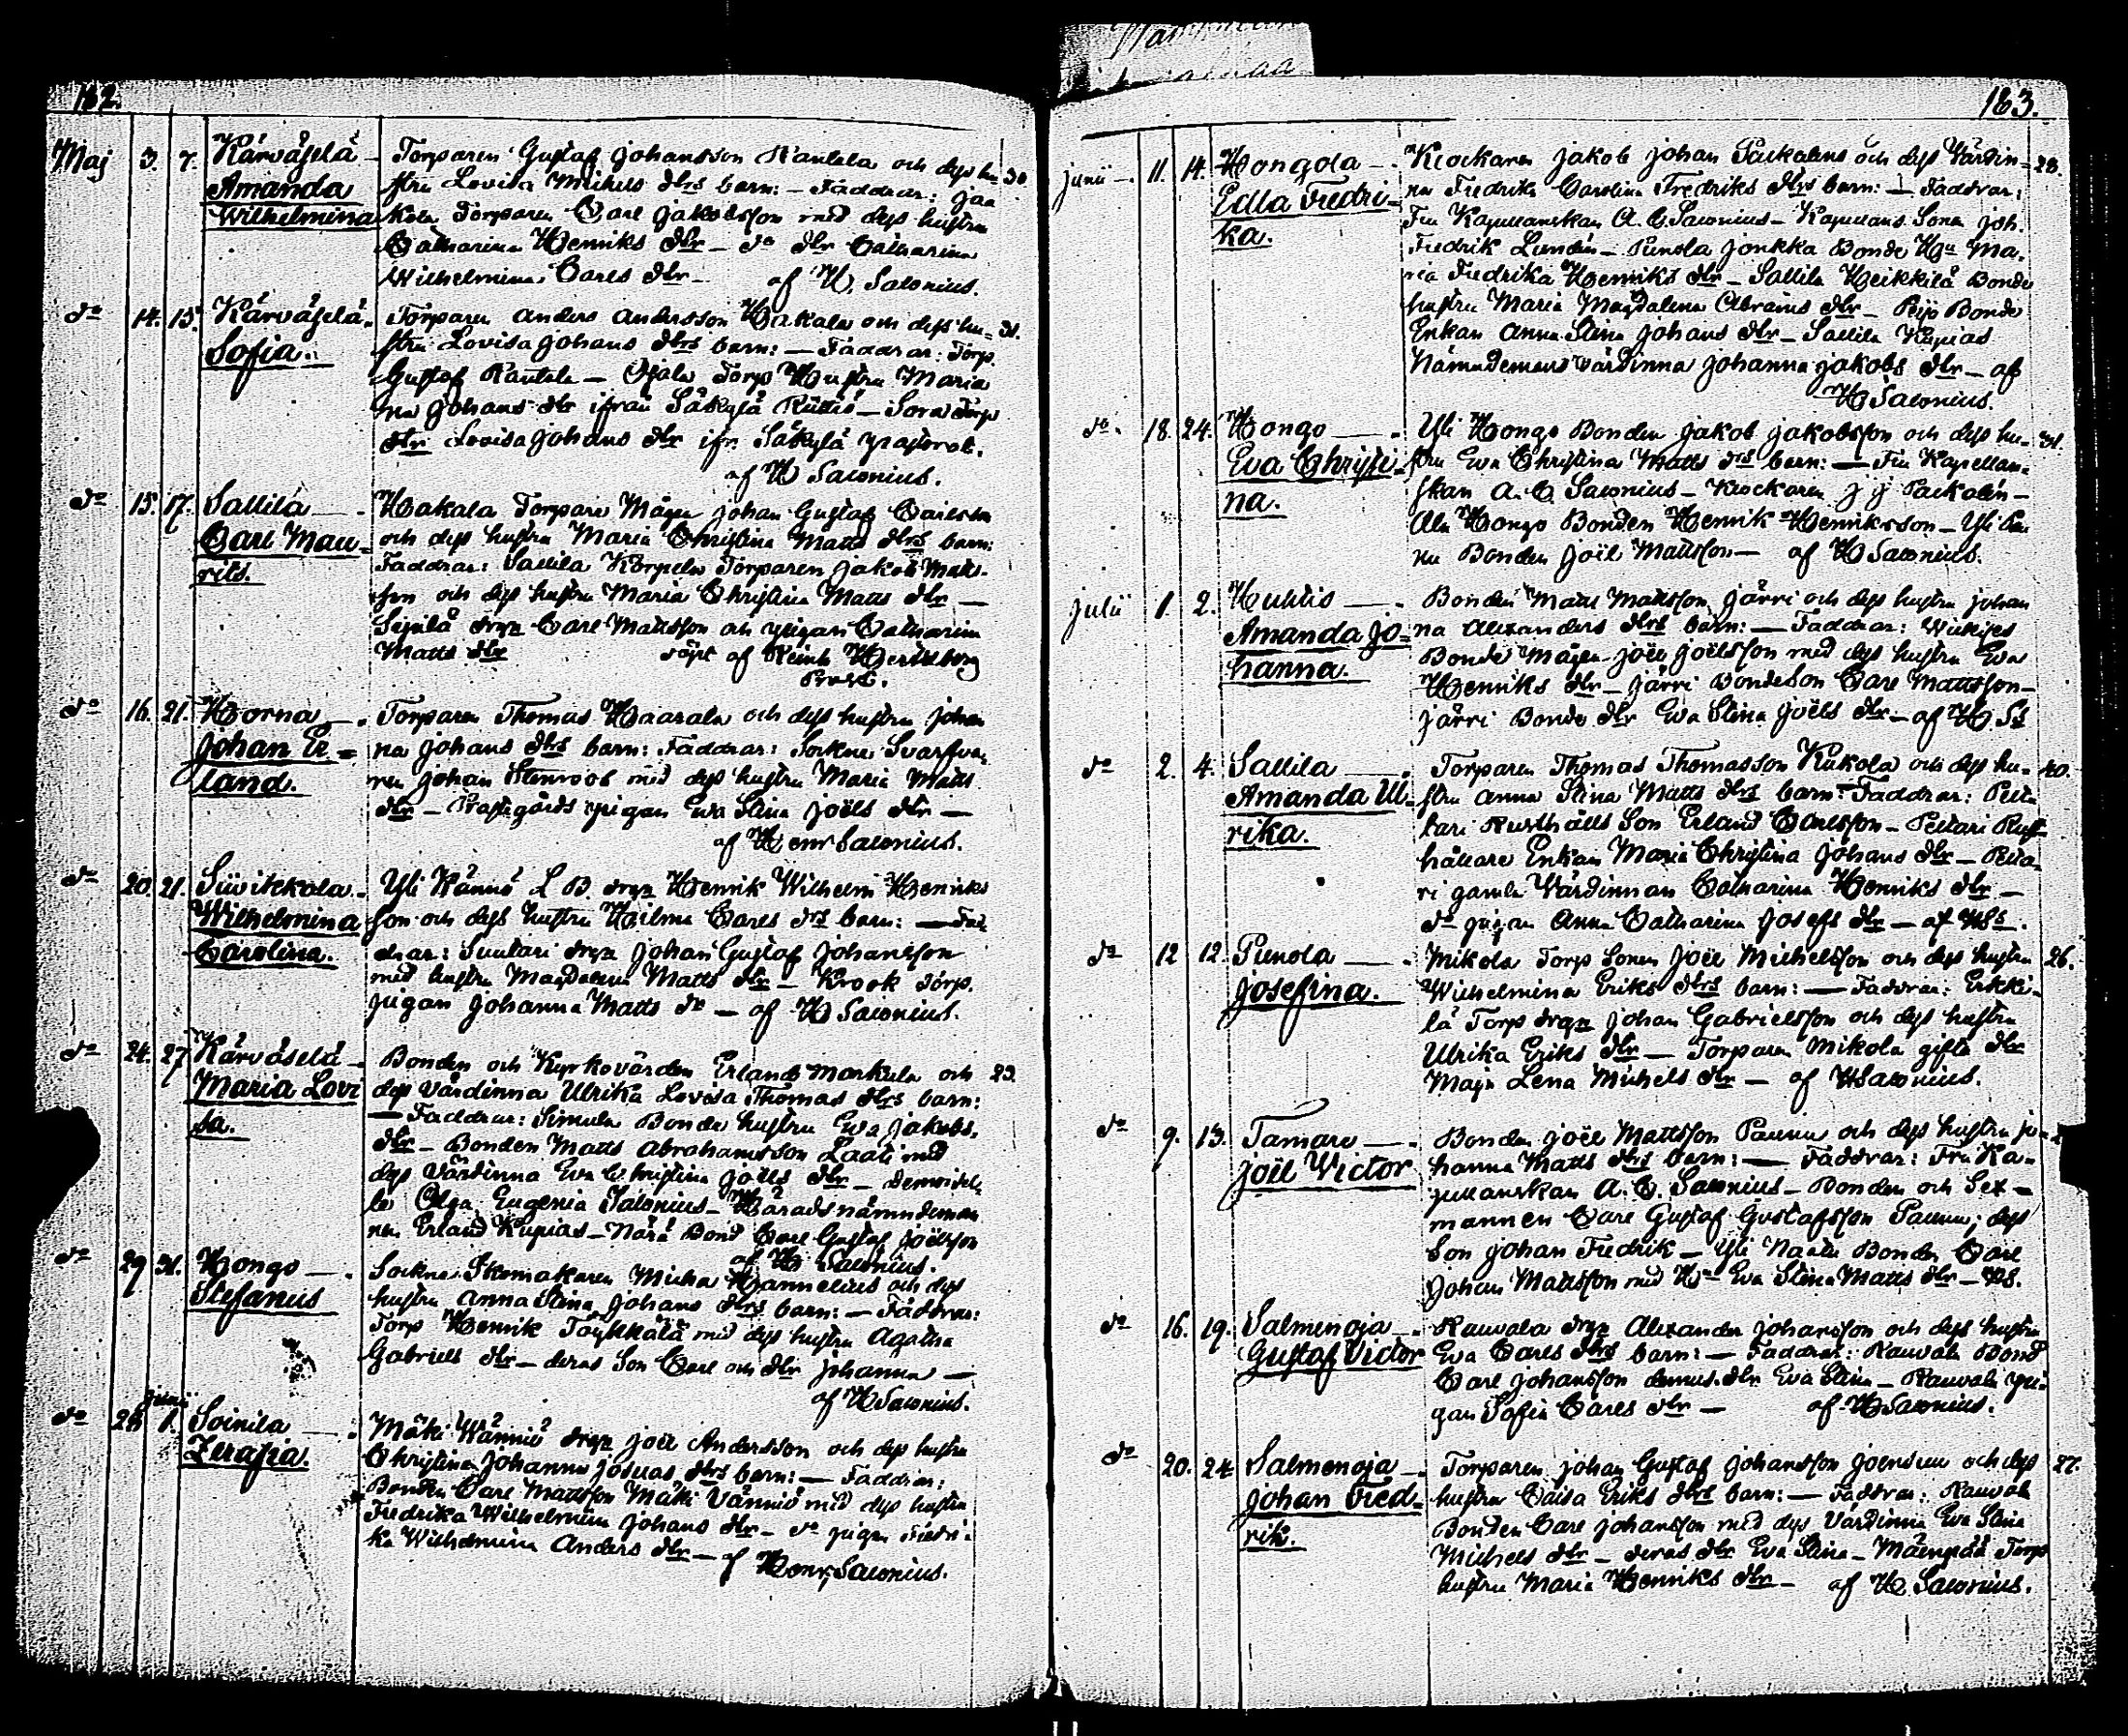 182.
Maj 3. 7. Kärväselä – Torparen Gustaf Johansson Rantala och dess hu- 30
Amanda stru Lovisa Michels dtrs barn: – Faddrar: Jaa
Wilhelmina kola Torparen Carl Jakobsson med dess hustru
Catharina Henriks dtr – do dtr Catharina
Wilhelmina Carls dtr – af H. Salonius.
do 14. 15. Kärväselä. Torparen Anders Andersson Hakala och dess hu- 31.
Sofia. stru Lovisa Johans dtrs barn: – Faddrar: Torp.
Gustaf Rantala – Ojala Torp Hustru Maria
na Johans dtr ifrån Säkylä – Sora Torp
dtr Lovisa Johans dtr ifr. Säkylä
af H Salonius.
do 15. 17. Sallila – Hakala Torpare Mågen Johan Gustaf Carlsson
Carl Mau- och dess hustru Maria Christina Matts dtrs barn:
rits. Faddrar: Sallila Korpela Torparen Jakob Matts-
son och dess hustru Maria Christina Matts dtr –
drgn Carl Mattsson och pigan Catharina
Matts dtr döpt af Heurlberg
Prost.
do 16. 21. Horna – Torparen Thomas Haarala och dess hustru Johan
Johan Er- na Johans dtrs barn: Faddrar: Sockne Svarfva-
land. ren Johan Stenroos med dess hustru Maria Matts
dtr – Prästgårds pigan Eva Stina Joëls dtr –
af Henr Salonius.
do 20. 21. Yli Männiö L B. drgn Henrik Wilhelm Henriks
Wilhelmina son och dess hustru Hilma Carls drs barn: – Fad
Carolina. drar: Suutari drgn Johan Gustaf Johansson
med hustru Magdalena Matts dtr – Krook Torp.
pigan Johanna Matts dr – af H Salonius.
do 24. 27 Kärväselä – Bonden och Kyrkovärden Erland Markula och 23.
Maria Lovi dess värdinna Ulrika Lovisa Thomas dtrs barn:
sa. – Faddrar: Simula Bonde hustru Eva Jakobs.
dtr – Bonden Matts Abrahamsson Laati med
dess Värdinna Eva Christina Joëls dtr – Demoisel-
le Olga Eugenia Salonius – Häradsnämndeman
nen Erland Kupias – Närä Bond Carl Gustaf Joëlsson
af H Salonius.
do 29 31. Hongo – Sockne Skomakaren Micha Hannelius och dess
Stefanus hustru Anna Stina Johans dtrs barn: – Faddrar:
Torp Henrik Töykkälä med dess hustru Agatha
Gabriels dtr – deras Son Carl och dtr Johanna –
af H Salonius.
junii
do 26 1. Soinila – Mäki Wänniö drgn Joël Andersson och dess hustru
Zerafia. Christina Johanna Josuas dtrs barn: – Faddrar:
Bonden Carl Mattsson Mäki Vänniö med dess hustru
Fredrika Wilhelmina Johans dtr – do pigan Fredri-
ka Wilhelmina Anders dtr – af Henr. Salonius.
183.
junii – 11. 14. Hongola – Klockaren Jakob Johan Packalens och dess Värdin- 28.
Edla Fredri- na Fredrika Carolina Fredriks dtrs barn: – Faddrar:
ka. Fru Kapellanskan A. C. Salonius – Kapellans Sonen Joh.
Fredrik Lundén – Punola Jonkka Bonde Hu Ma-
ria Fredrika Henriks dtr – Sallila Heikkilä Bonde
hustru Maria Magdalena Abrams dtr – Bonde
Enkan Anna Stina Johans dtr – Sallila Kupias
Nämndemans värdinna Johanna Jakobs dtr – af
H Salonius.
do. 18. 24. Hongo – Yli Hongo Bonden Jakob Jakobsson och dess hu- 31.
Eva Christi- stru Eva Christina Matts drs barn: – Fru Kapellan-
na. skan A. C. Salonius – Klockaren J J Packalén –
Ala Hongo Bonden Henrik Henriksson – Yli Pau
nu Bonden Joël Mattsson – af H Salonius.
julii 1. 2. Huhtis – Bonden Matts Mattsson Järri och dess hustru Johan
Amanda Jo- na Alexanders dtrs barn: – Faddrar:
hanna. Bonde Mågen Joël Joëlsson med dess hustru Eva
Henriks dtr – Järri Bondeson Carl Mattsson –
Järri Bonde dtr Eva Stina Joëls dtr – af H. Ss
do 2. 4. Sallila – Torparen Thomas Thomasson Kukola och dess hu- 40.
Amanda Ul- stru Anna Stina Matts dtrs barn: Faddrar: Pelta
rika. tari Rusthålls Son Erland Carlsson – Peltari Rust-
hållare Enkan Maria Christina Johans dtr – Pelta-
ri gamla Värdinnan Catharina Henriks dtr –
do pigan Anna Catharina Josefs dtr – af HSs.
do 12 12. Punola – Mikola Torp Sonen Joël Michelsson och dess hustru 26.
Josefina. Wilhelmina Eriks dtrs barn: – Faddrar: Erkki-
lä Torp drgn Johan Gabrielsson och dess hustru
Ulrika Eriks dtr – Torparen Mikola gifta dtr
Maja Lena Michels dtr – af H Salonius.
do 9. 13. Tamare – Bonden Joël Mattsson Paunu och dess hustru Jo-
Joël Wictor hanna Matts dtrs barn: – Faddrar: Fru Ka-
pellanskan A. C. Salonius – Bonden och Sex-
mannen Carl Gustaf Gustafsson Paunu, dess
Son Johan Fredrik – Yli Naatu Bonden Carl
Johan Mattsson med Hu Eva Stina Matts dtr – HS.
do 16. 19. Salmenoja – Rauvala drgn Alexander Johansson och dess hustru
Gustaf Victor Eva Carls dtrs barn: – Faddrar: Rauvala Bond
Carl Johansson dennes dtr Eva Stina – Rauvala pi-
gan Sofia Carls dtr – af H Salonius.
do 20. 24 Salmenoja – Torparen Johan Gustaf Johansson Joensuu och dess 27.
Johan Fred- hustru Caisa Eriks dtrs barn: – Faddrar: Rauvala
rik. Bonden Carl Johansson med dess Värdinna Eva Stina
Michels dtr – deras dtr Eva Stina – Mäenpää Torp
hustru Maria Henriks dtr – af H. Salonius.